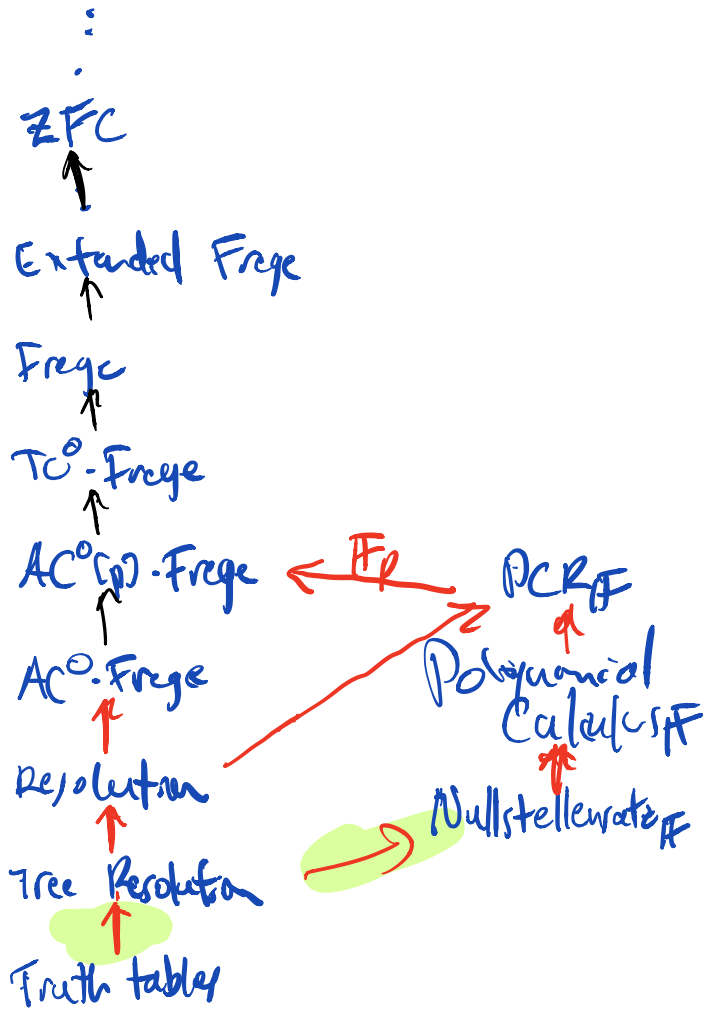 ZFC
Extended Frege
Frege
TC⁰-Frege
AC⁰[p]-Frege
𝔽p
PCR𝔽
AC⁰-Frege
Polynomial
Calculus𝔽
Resolution
Nullstellensatz𝔽
Tree Resolution
Truth tables